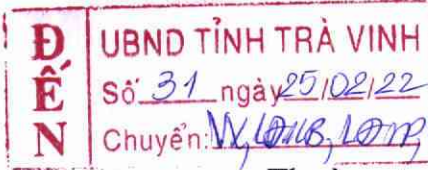 ĐẾN
UBND TỈNH TRÀ VINH
Số 31 ngày 25/02/22
Chuyển: